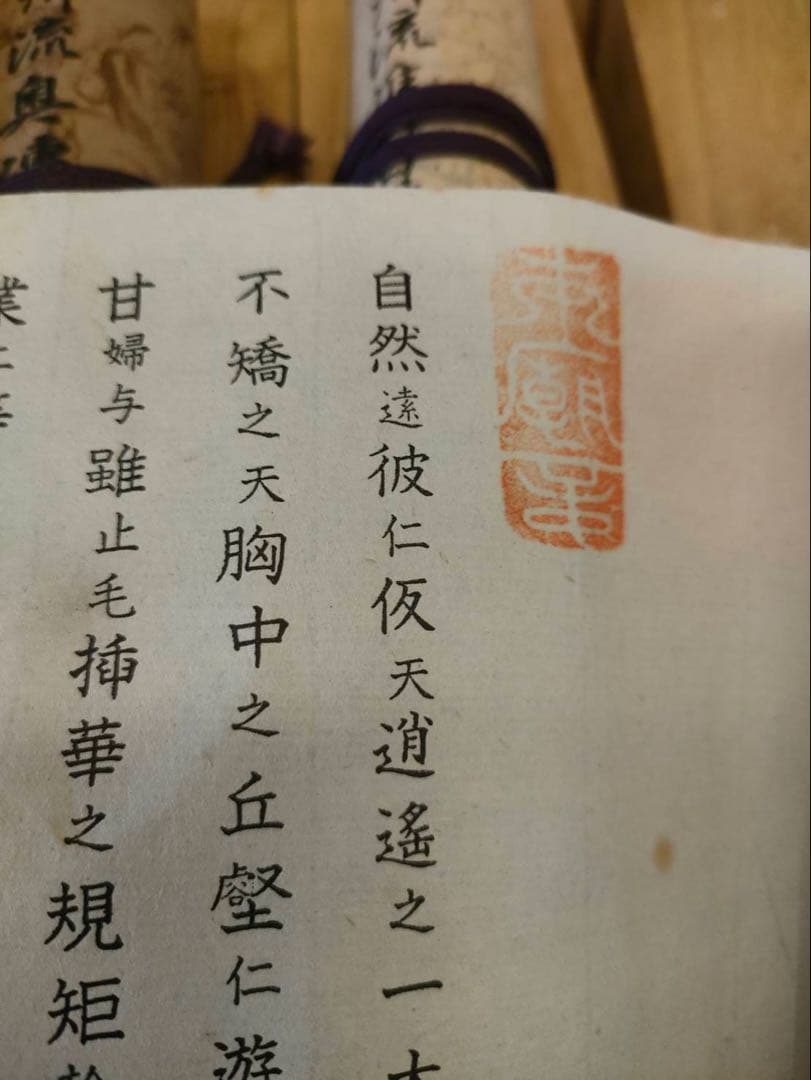 自然遠彼仁仮天逍遙之一
不矯之天胸中之丘壑仁遊
甘婦与雖止毛挿華之規矩
業
流奥
流